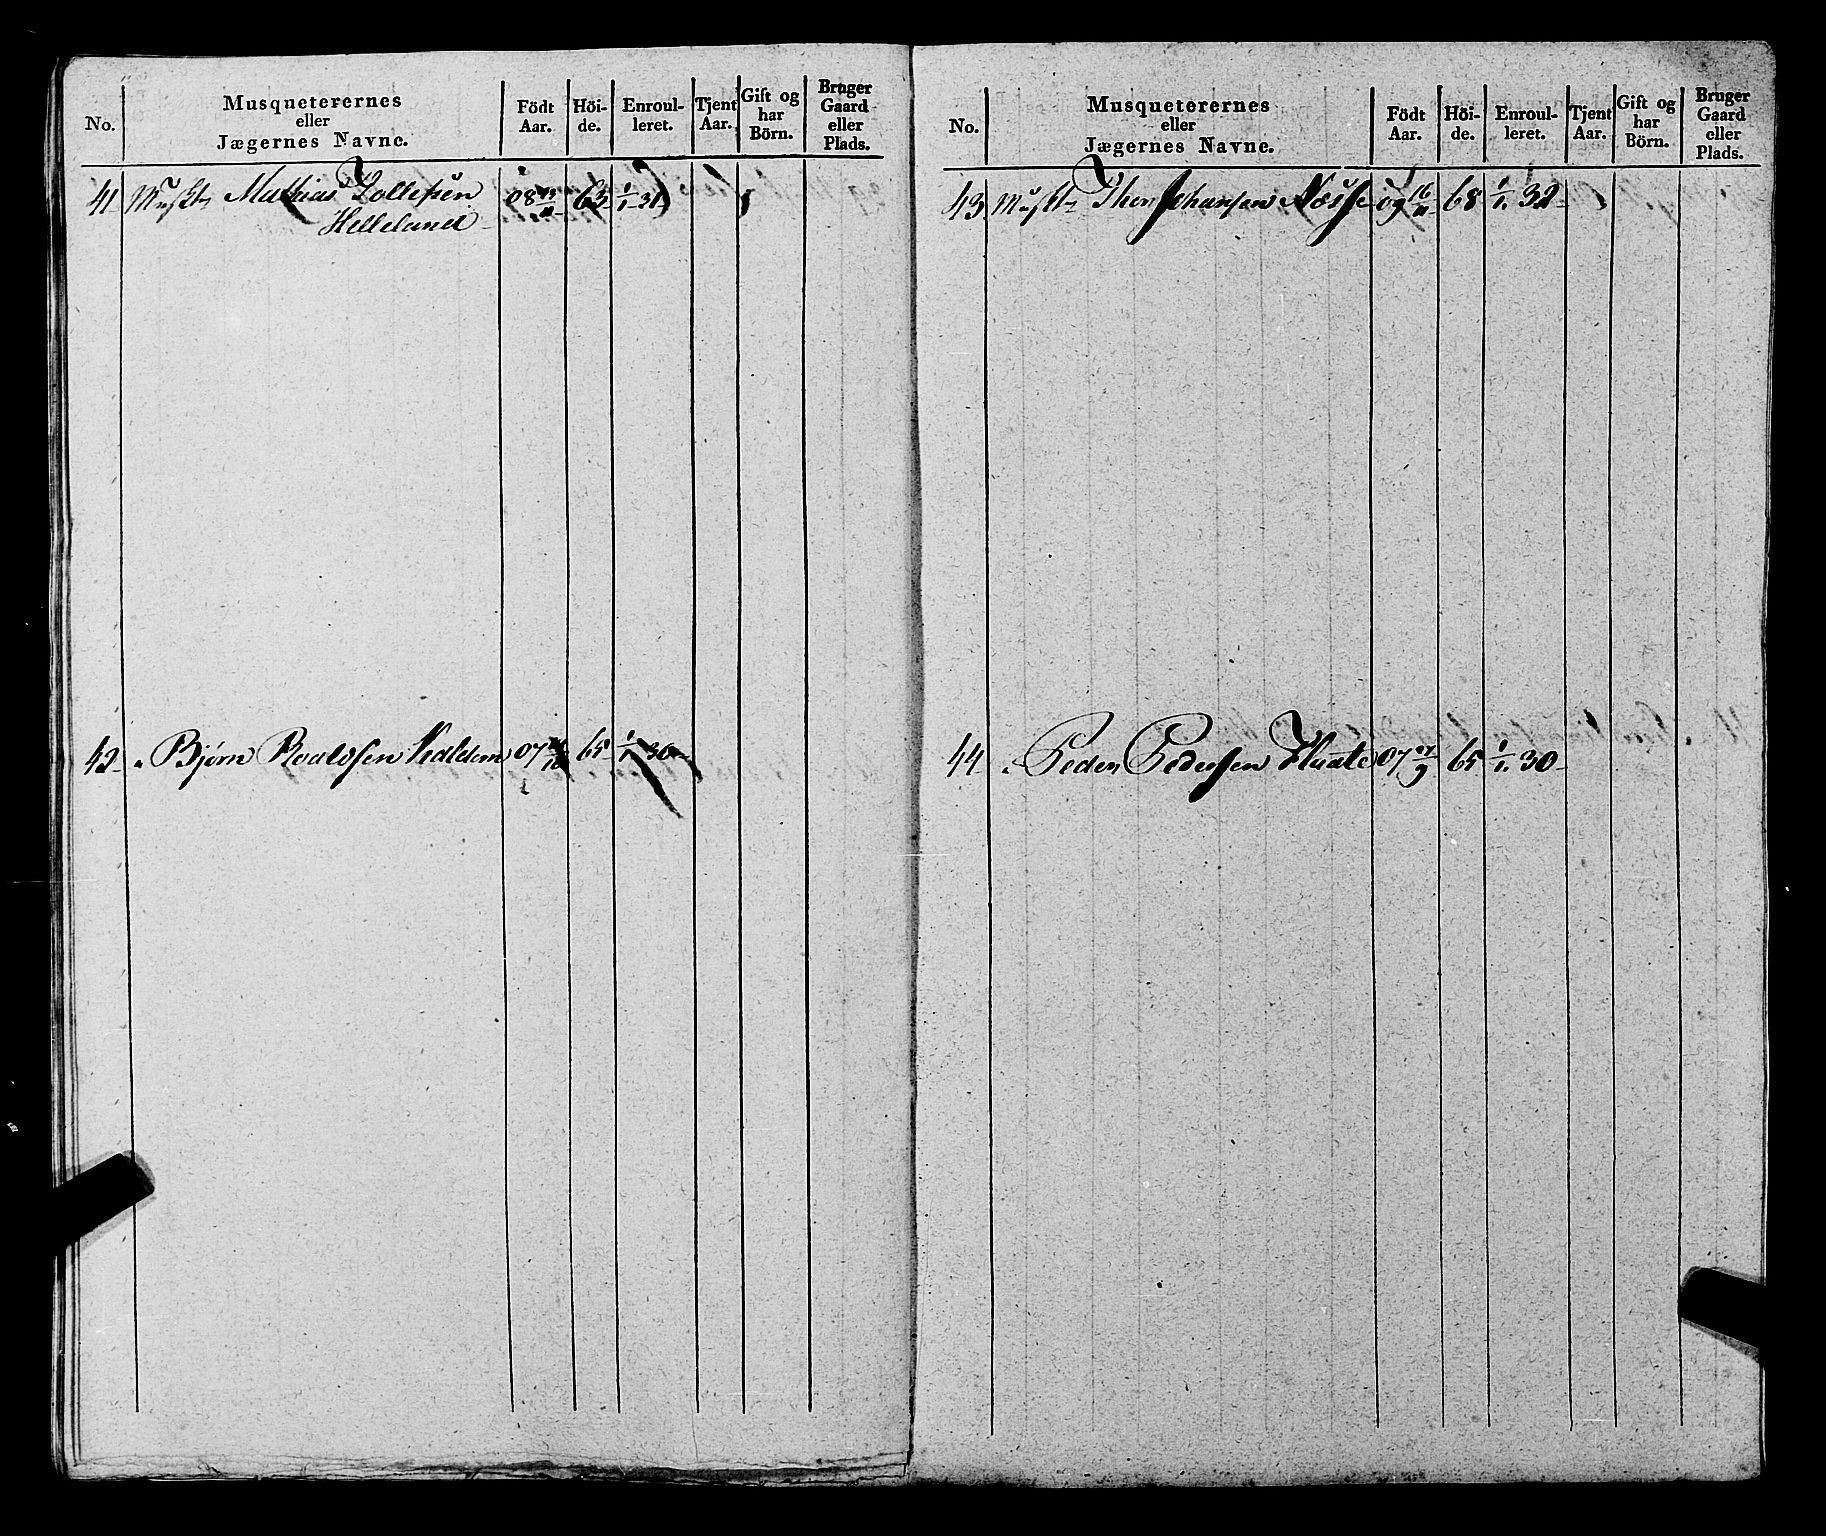 No.
Musqueterernes
eller
Jægernes Navne.
Födt
Aar.
Höi-
de.
Enroul-
leret.
Tjent
Aar.
Gift og
har
Börn.
Bruger
Gaard
eller
Plads.
41 Muskt Mathias Tollefsen 08 63 1/1 31
Helleland
42 " Bjørn Roaldsen 07 65 1/1 30
No.
Musqueterernes
eller
Jægernes Navne.
Födt
Aar.
Höi-
de.
Enroul-
leret.
Tjent
Aar.
Gift og
har
Börn.
Bruger
Gaard
eller
Plads.
43 Muskt Johansen Næsse 09 16/11 68 1/1 32
44 " Peder Pedersen 07 27/9 65 1/1 30